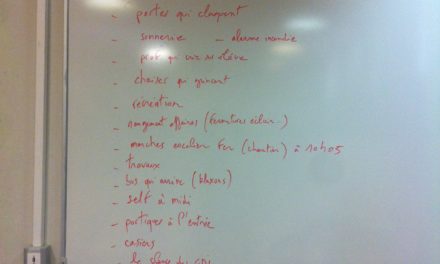 - porter qui claquent
- sonnerie - alarme incendie
- prof qui crie sur élève
- chaises qui grincent
- récréation
- rangement affaires (fermetures éclair...)
- marches escalier Fer (chantier) à 10h05
- travaux
- bus qui arrive (klaxons)
- self à midi
- portique à l'entrée
- casiers